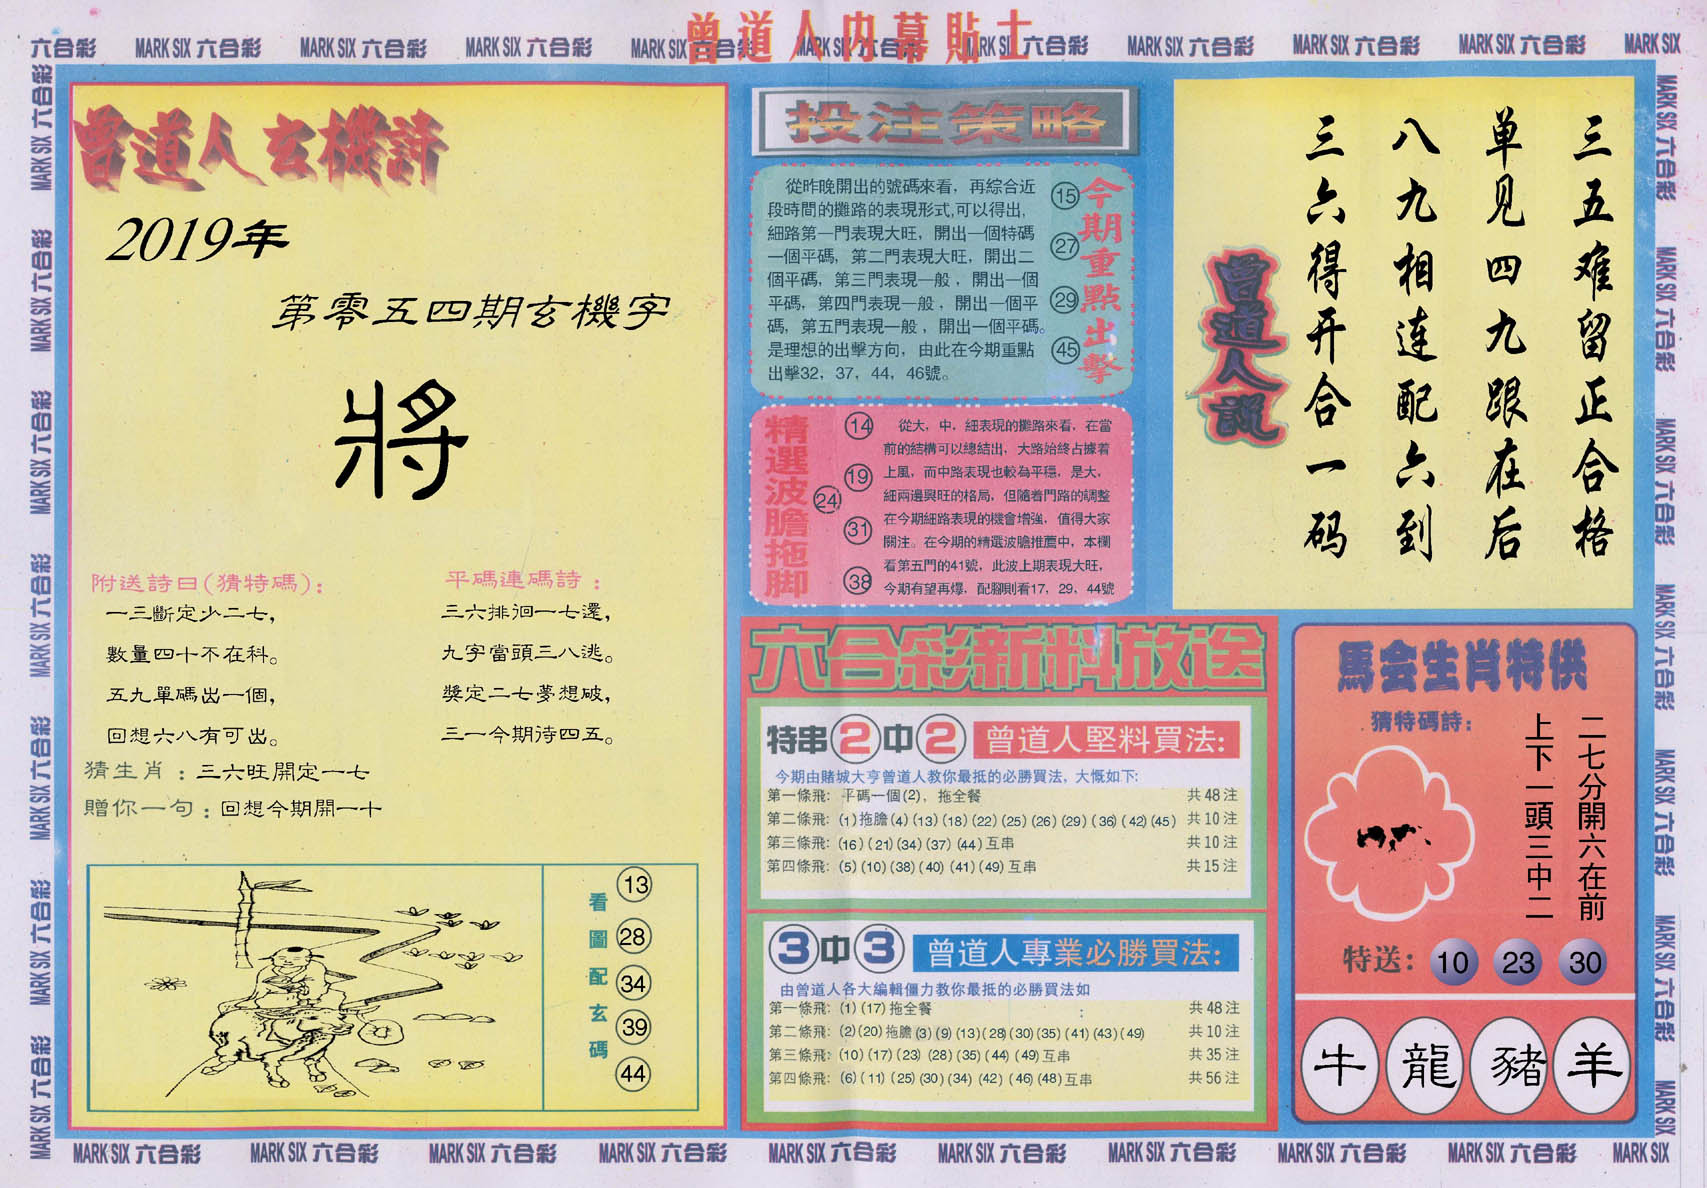 曾道人内幕貼士
六合彩 MARK SIX 六合彩 MARK SIX 六合彩 MARK SIX 六合彩 MARK SIX 六合彩 MARK SIX 六合彩 MARK SIX 六合彩 MARK SIX 六合彩 MARK SIX 六合彩 MARK SIX 六合彩 MARK SIX
曾道人玄機詩
2019年
第零五四期玄機字
將
附送詩曰(猜特碼):
一三斷定少二七,
數量四十不在科。
五九單碼出一個,
回想六八有可出。
平碼連碼詩:
三六排徊一七還,
九字當頭三八逃。
獎定二七夢想破,
三一今期待四五。
猜生肖:三六旺開定一七
贈你一句:回想今期開一十
看圖配玄碼
13
28
34
39
44
投注策略
從昨晚開出的號碼來看，再綜合近
段時間的攤路的表現形式,可以得出,
細路第一門表現大旺，開出一個特碼
一個平碼，第二門表現大旺，開出二
個平碼，第三門表現一般，開出一個
平碼，第四門表現一般，開出一個平
碼，第五門表現一般，開出一個平碼。
是理想的出擊方向，由此在今期重點
出擊32，37，44，46號。
15
27
29
45
今期重點出擊
精選波膽拖脚
14
19
24
31
38
從大，中，細表現的攤路來看，在當
前的結構可以總結出，大路始終占據着
上風，而中路表現也較為平穩，是大，
細兩邊興旺的格局，但隨着門路的調整
在今期細路表現的機會增強，值得大家
關注。在今期的精選波膽推薦中，本欄
看第五門的41號，此波上期表現大旺，
今期有望再爆，配腳則看17，29，44號
六合彩新料放送
特串2中2 曾道人堅料買法:
今期由賭城大亨曾道人教你最抵的必勝買法，大慨如下:
第一條飛: 平碼一個(2)，拖全餐 共48注
第二條飛: (1)拖膽(4)(13)(18)(22)(25)(26)(29)(36)(42)(45) 共10注
第三條飛: (16)(21)(34)(37)(44)互串 共10注
第四條飛: (5)(10)(38)(40)(41)(49)互串 共15注
3中3 曾道人專業必勝買法:
由曾道人各大編輯僵力教你最抵的必勝買法如
第一條飛: (1)(17)拖全餐 共48注
第二條飛: (2)(20)拖膽(3)(9)(13)(28)(30)(35)(41)(43)(49) 共10注
第三條飛: (10)(17)(23)(28)(35)(44)(49)互串 共35注
第四條飛: (6)(11)(25)(30)(34)(42)(46)(48)互串 共56注
三五难留正合格
单见四九跟在后
八九相连配六到
三六得开合一码
曾道人説
馬会生肖特供
猜特碼詩:
二七分開六在前
上下一頭三中二
特送: 10 23 30
牛 龍 豬 羊
MARK SIX 六合彩 MARK SIX 六合彩 MARK SIX 六合彩 MARK SIX 六合彩 MARK SIX 六合彩 MARK SIX 六合彩 MARK SIX 六合彩 MARK SIX 六合彩 MARK SIX 六合彩 MARK SIX